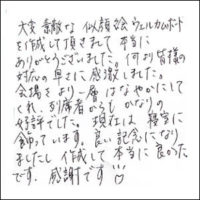 大変 素敵な 似顔絵ウェルカムボード
を作成して頂きまして 本当に
ありがとうございました。何より皆様の
対応の早さに感激しました。
会場をより一層はなやかにして
くれ、列席者からもかなりの
好評でした。現在は 寝室に
飾っています。良い記念になり
ましたし 作成して本当に良かった
です。感謝です